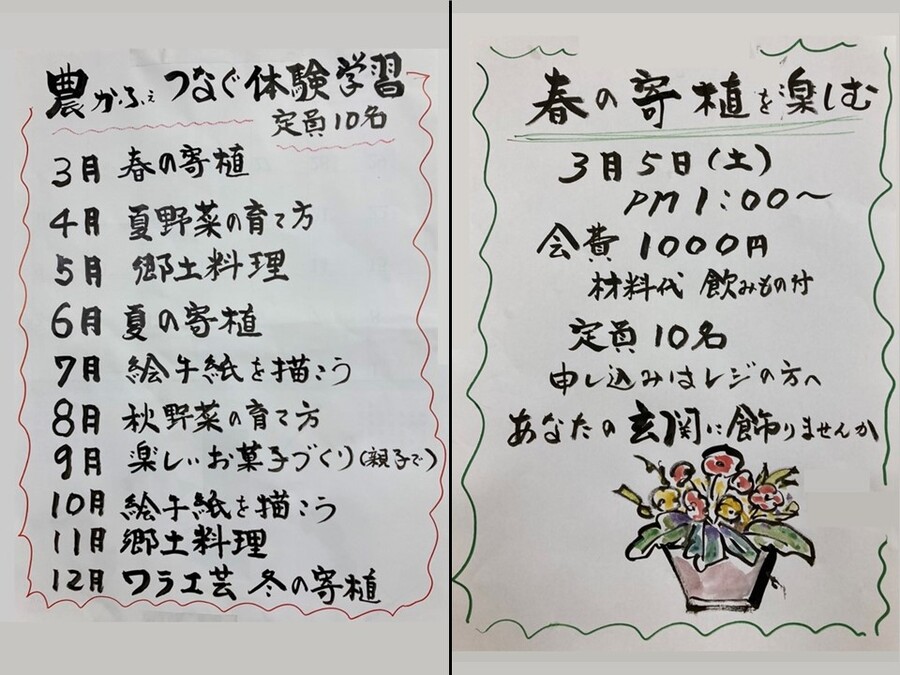 農かふぇ つなぐ体験学習
定員10名
3月 春の寄植
4月 夏野菜の育て方
5月 郷土料理
6月 夏の寄植
7月 絵手紙を描こう
8月 秋野菜の育て方
9月 楽しいお菓子づくり(親子で)
10月 絵手紙を描こう
11月 郷土料理
12月 ワラ工芸 冬の寄植
春の寄植を楽しむ
3月5日(土)
PM1:00〜
会費 1000円
材料代 飲みもの付
定員10名
申し込みはレジの方へ
あなたの玄関に飾りませんか